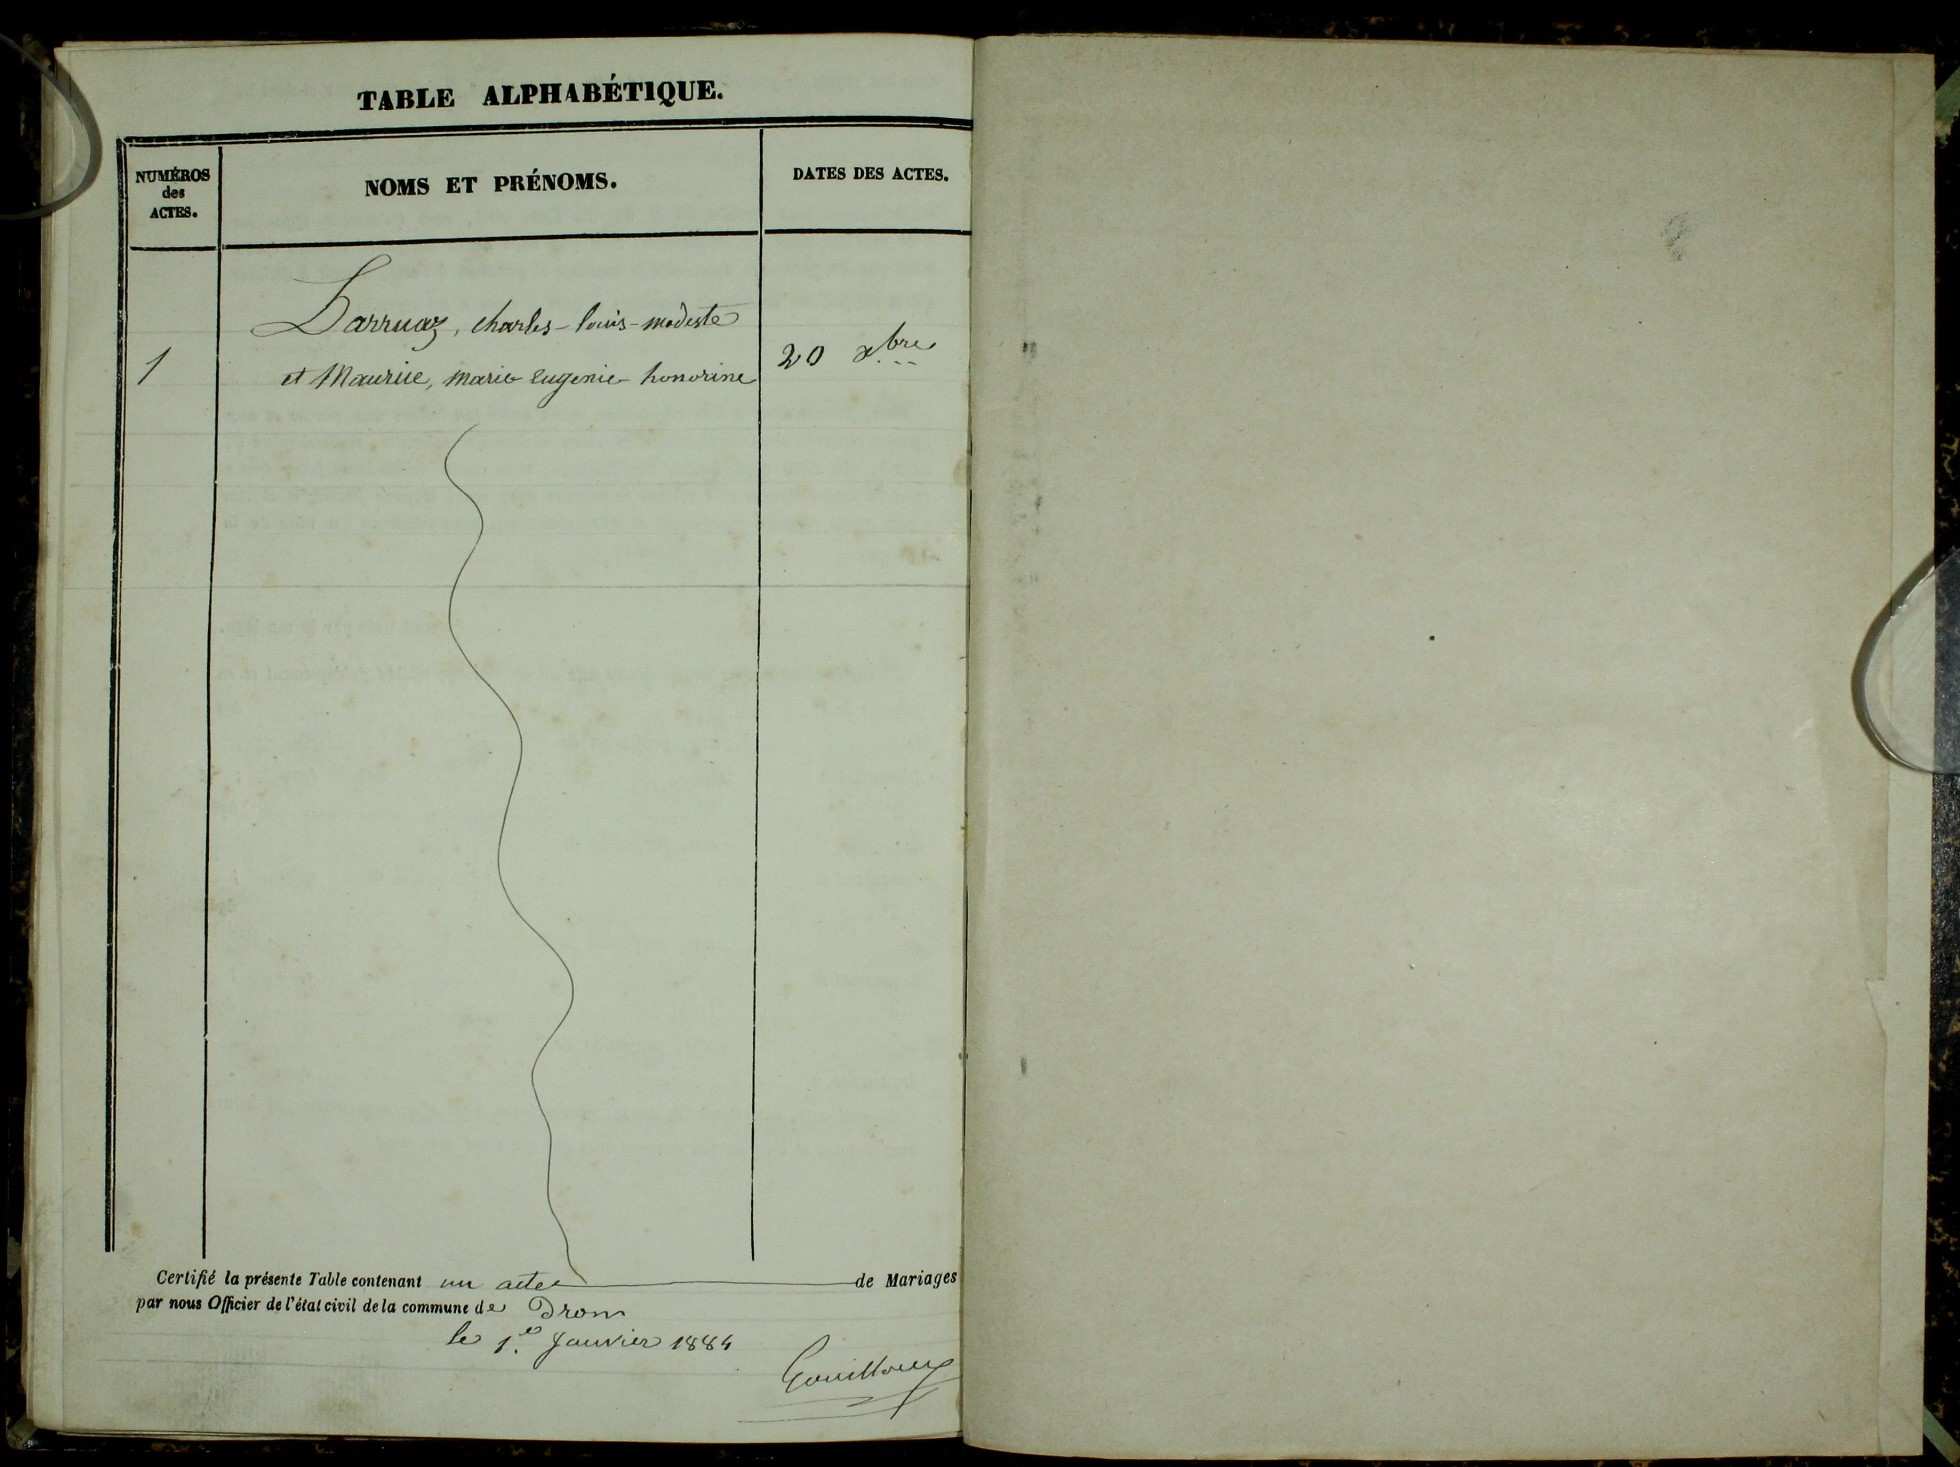 TABLE ALPHABÉTIQUE.
NUMÉROS
des
ACTES.
NOMS ET PRÉNOMS.
DATES DES ACTES.
Darruaz, charles-louis-modeste
1
et Maurice, marie eugenie honorine
20 xbre
Certifié la présente Table contenant un acte de Mariages
par nous Officier de l'état civil de la commune de Drom
le 1er Janvier 1884
Gouilloux